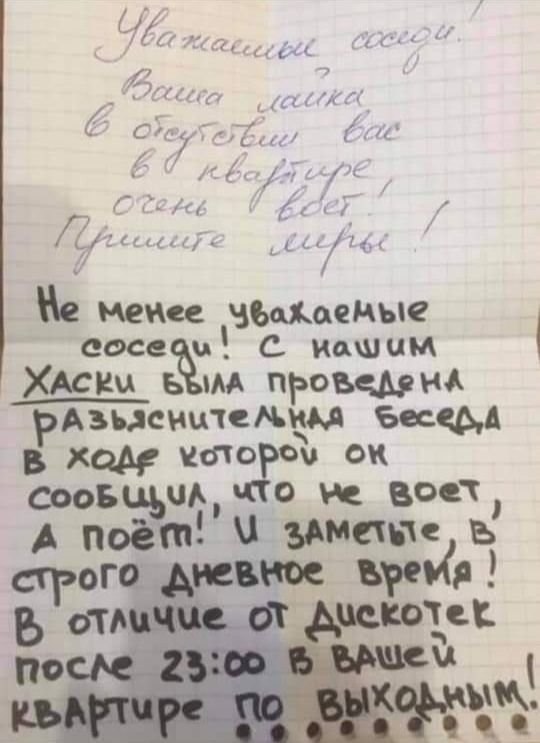 Уважаемые соседи!
Ваша лайка
в отсутствии вас
в квартире,
очень воет!
Примите меры!
Не менее уважаемые
соседи! С нашим
ХАСКИ БЫЛА ПРОВЕДЕНА
РАЗЬЯСНИТЕЛЬНАЯ БЕСЕДА
В ХОДЕ КОТОРОЙ ОН
СООБЩИЛ, ЧТО НЕ ВОЕТ,
А ПОЁТ! И ЗАМЕТЬТЕ, В
СТРОГО ДНЕВНОЕ ВРЕМЯ!
В ОТЛИЧИЕ ОТ ДИСКОТЕК
ПОСЛЕ 23:00 В ВАШЕЙ
КВАРТИРЕ ПО ВЫХОДНЫМ!